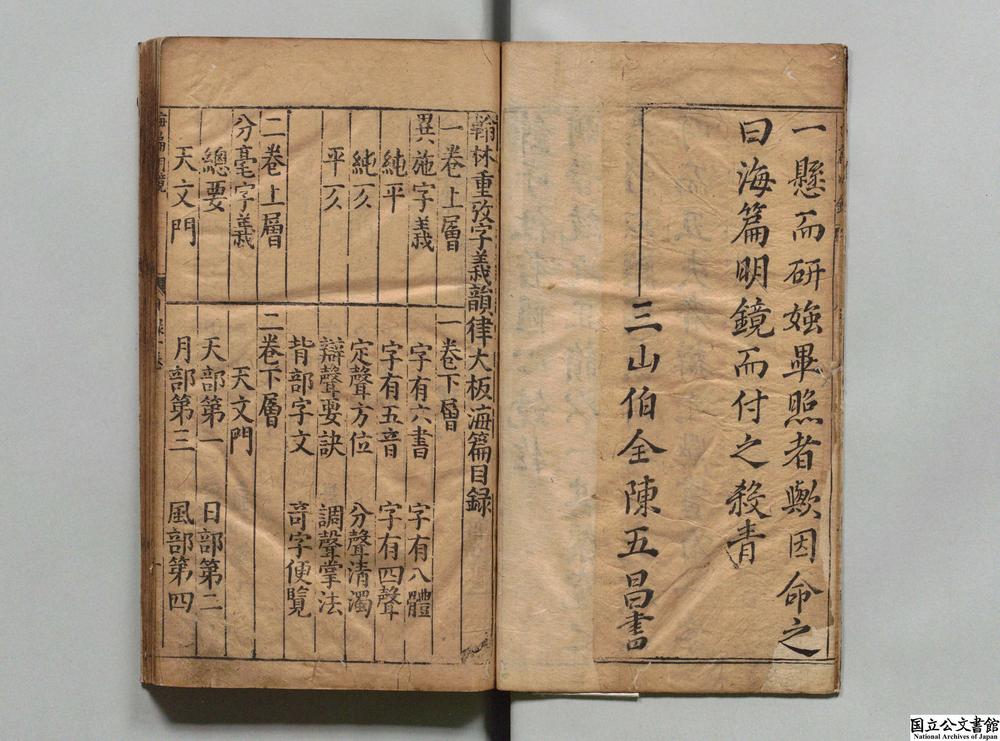 一懸而研媸畢照者歟因命之
曰海篇明鏡而付之殺青
三山伯全陳五昌書
翰林重攷字義韻律大板海篇目録
一卷上層
異施字義
純平
純仄
平仄
二卷上層
分毫字義
總要
天文門
一卷下層
字有六書 字有八體
字有五音 字有四聲
定聲方位 分聲清濁
辯聲要訣 調聲掌法
背部字文 竒字便覽
二卷下層
天文門
天部第一 日部第二
月部第三 風部第四
海篇明鏡
国立公文書館
National Archives of Japan